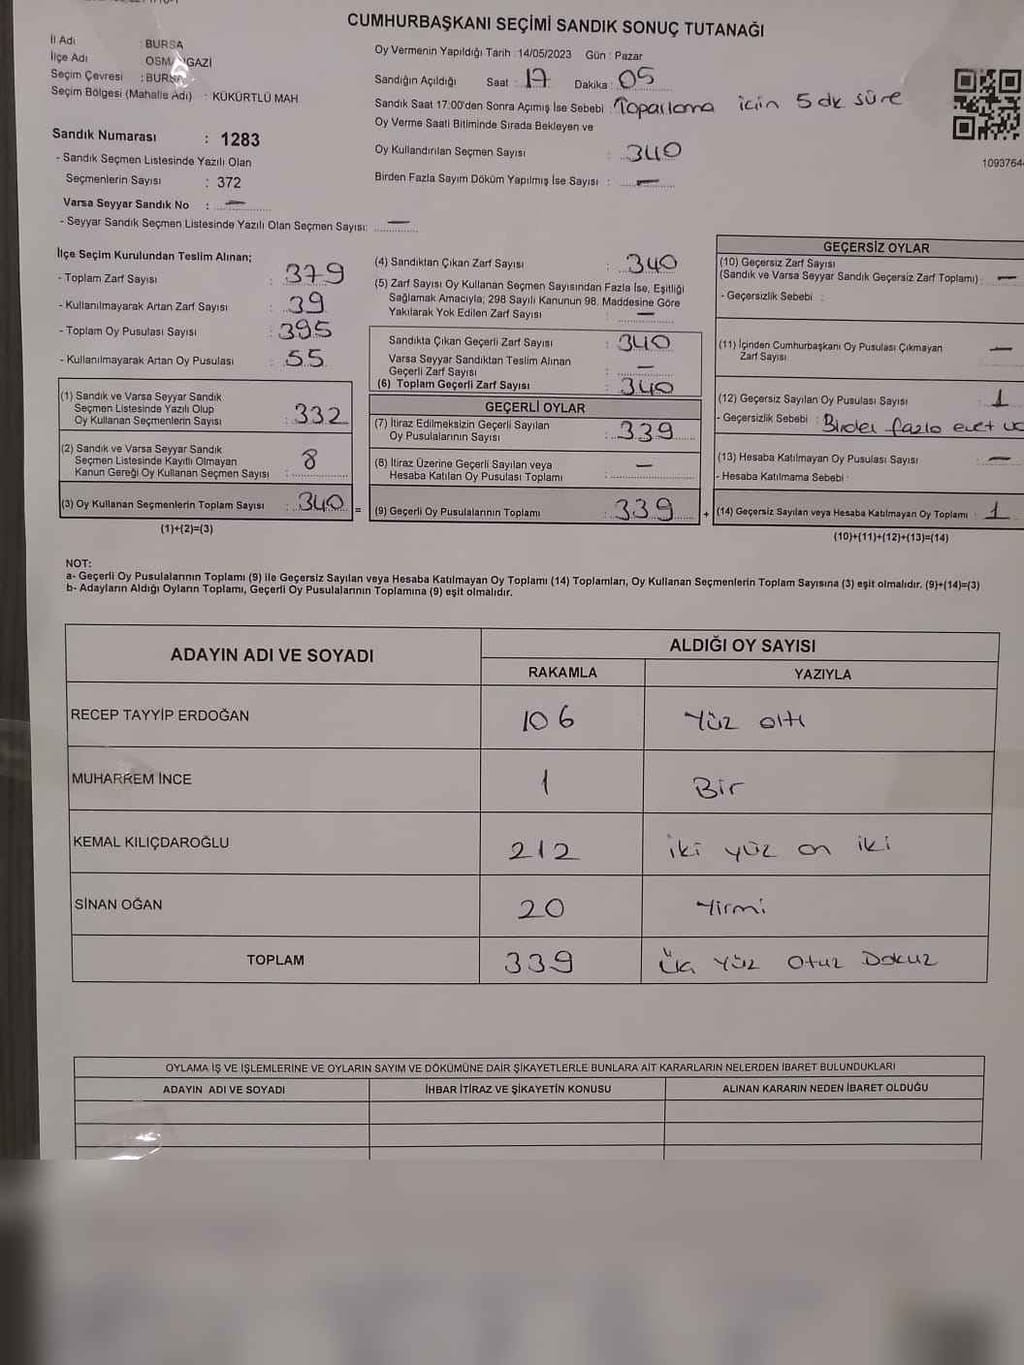 CUMHURBAŞKANI SEÇİMİ SANDIK SONUÇ TUTANAĞI
İl Adı : BURSA
İlçe Adı OSMANGAZİ
Seçim Çevresi : BURSA
Seçim Bölgesi (Mahalle Adı) : KÜKÜRTLÜ MAH
Sandık Numarası : 1283
- Sandık Seçmen Listesinde Yazılı Olan
Seçmenlerin Sayısı : 372
Varsa Seyyar Sandık No : —
- Seyyar Sandık Seçmen Listesinde Yazılı Olan Seçmen Sayısı: —
Oy Vermenin Yapıldığı Tarih : 14/05/2023 Gün : Pazar
Sandığın Açıldığı Saat : 17 Dakika : 05
Sandık Saat 17:00'den Sonra Açımış İse Sebebi : Toparlama için 5 dk süre
Oy Verme Saati Bitiminde Sırada Bekleyen ve
Oy Kullandırılan Seçmen Sayısı : 340
Birden Fazla Sayım Döküm Yapılmış İse Sayısı : —
1093764
İlçe Seçim Kurulundan Teslim Alınan;
- Toplam Zarf Sayısı : 379
- Kullanılmayarak Artan Zarf Sayısı : 39
- Toplam Oy Pusulası Sayısı : 395
- Kullanılmayarak Artan Oy Pusulası : 55
(1) Sandık ve Varsa Seyyar Sandık
Seçmen Listesinde Yazılı Olup
Oy Kullanan Seçmenlerin Sayısı : 332
(2) Sandık ve Varsa Seyyar Sandık
Seçmen Listesinde Kayıtlı Olmayan
Kanun Gereği Oy Kullanan Seçmen Sayısı : 8
(3) Oy Kullanan Seçmenlerin Toplam Sayısı : 340 =
(1)+(2)=(3)
(4) Sandıktan Çıkan Zarf Sayısı : 340
(5) Zarf Sayısı Oy Kullanan Seçmen Sayısından Fazla İse, Eşitliği
Sağlamak Amacıyla; 298 Sayılı Kanunun 98. Maddesine Göre
Yakılarak Yok Edilen Zarf Sayısı : —
Sandıkta Çıkan Geçerli Zarf Sayısı : 340
Varsa Seyyar Sandıktan Teslim Alınan
Geçerli Zarf Sayısı : —
(6) Toplam Geçerli Zarf Sayısı : 340
GEÇERLİ OYLAR
(7) İtiraz Edilmeksizin Geçerli Sayılan
Oy Pusulalarının Sayısı : 339
(8) İtiraz Üzerine Geçerli Sayılan veya
Hesaba Katılan Oy Pusulası Toplamı : —
(9) Geçerli Oy Pusulalarının Toplamı : 339 +
GEÇERSİZ OYLAR
(10) Geçersiz Zarf Sayısı
(Sandık ve Varsa Seyyar Sandık Geçersiz Zarf Toplamı) : —
- Geçersizlik Sebebi :
(11) İçinden Cumhurbaşkanı Oy Pusulası Çıkmayan
Zarf Sayısı —
(12) Geçersiz Sayılan Oy Pusulası Sayısı : 1
- Geçersizlik Sebebi : Birden fazla evet
(13) Hesaba Katılmayan Oy Pusulası Sayısı : —
- Hesaba Katılmama Sebebi :
(14) Geçersiz Sayılan veya Hesaba Katılmayan Oy Toplamı : 1
(10)+(11)+(12)+(13)=(14)
NOT:
a- Geçerli Oy Pusulalarının Toplamı (9) ile Geçersiz Sayılan veya Hesaba Katılmayan Oy Toplamı (14) Toplamları, Oy Kullanan Seçmenlerin Toplam Sayısına (3) eşit olmalıdır. (9)+(14)=(3)
b- Adayların Aldığı Oyların Toplamı, Geçerli Oy Pusulalarının Toplamına (9) eşit olmalıdır.
ADAYIN ADI VE SOYADI ALDIĞI OY SAYISI
RAKAMLA YAZIYLA
RECEP TAYYİP ERDOĞAN 106 Yüz altı
MUHARREM İNCE 1 Bir
KEMAL KILIÇDAROĞLU 212 iki yüz on iki
SİNAN OĞAN 20 Yirmi
TOPLAM 339 Üç Yüz Otuz Dokuz
OYLAMA İŞ VE İŞLEMLERİNE VE OYLARIN SAYIM VE DÖKÜMÜNE DAİR ŞİKAYETLERLE BUNLARA AİT KARARLARIN NELERDEN İBARET BULUNDUKLARI
ADAYIN ADI VE SOYADI İHBAR İTİRAZ VE ŞİKAYETİN KONUSU ALINAN KARARIN NEDEN İBARET OLDUĞU